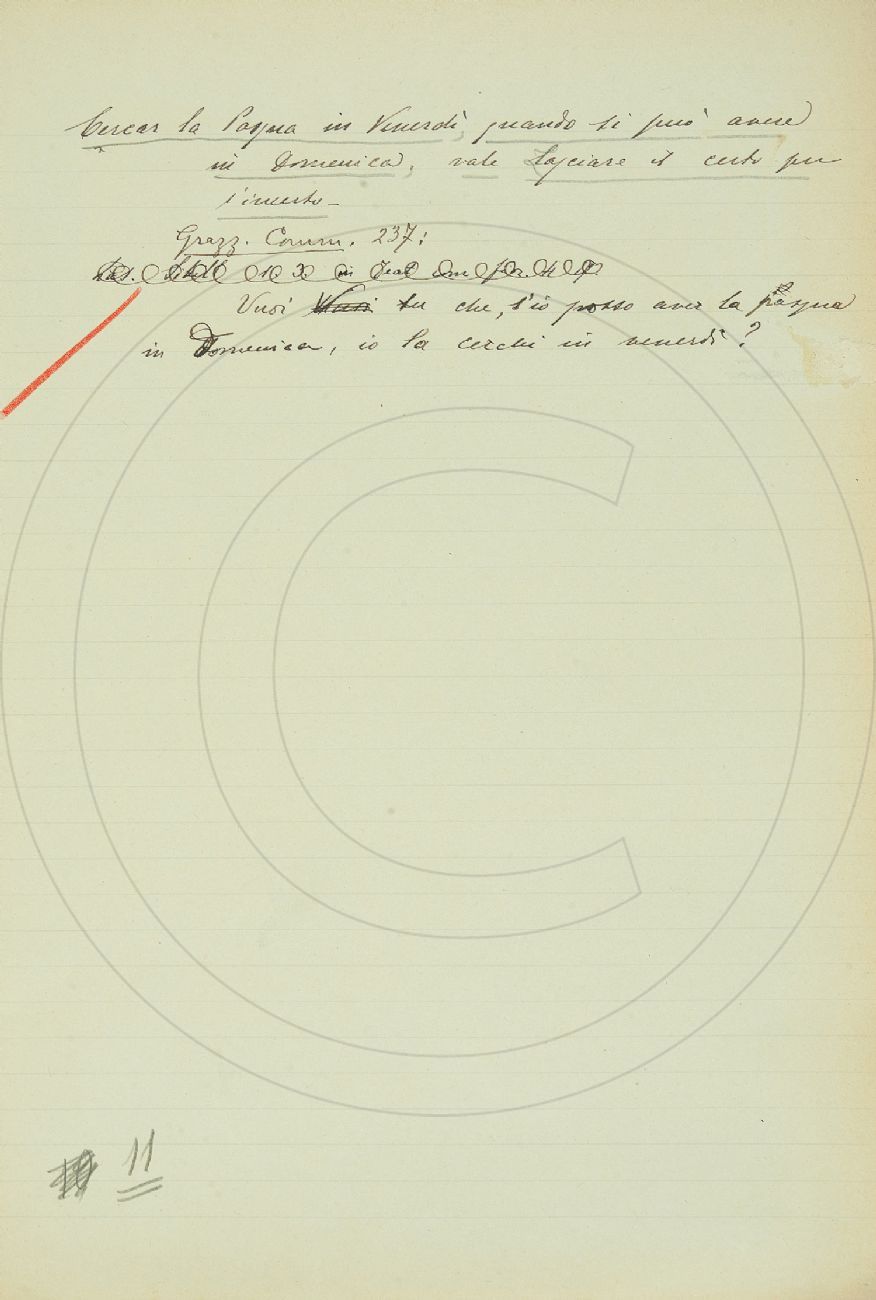 Cercar la Pasqua in Venerdì, quando si può avere
in Domenica, vale lasciare il certo per
l'incerto –
Grazz. Comm. 237:
Vuoi tu che, s'io posso aver la pasqua
in Domenica, io la cerchi in venerdì?
11